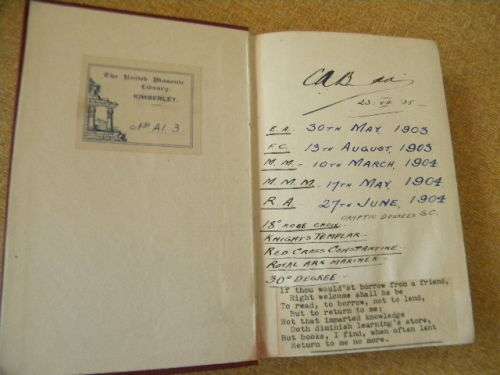 The United Masonic
Library,
KIMBERLEY.
No A1.3
23. VII. 35.
E.A. 30TH MAY 1903
F.C. 13TH AUGUST, 1903
M.M. - 10TH MARCH, 1904
M.M.M. - 17TH MAY, 1904
R A. 27TH JUNE, 1904
CRYPTIC DEGREES S.C.
18° ROSE CROIX
KNIGHTS TEMPLAR.
RED CROSS CONSTANTINE.
ROYAL ARK MARINER
30° DEGREE.
If thou would'st borrow from a friend,
Right welcome shall he be
To read, to borrow, not to lend,
But to return to me;
Not that imparted knowledge
Doth diminish learning's store,
But books, I find, when often lent
Return to me no more.